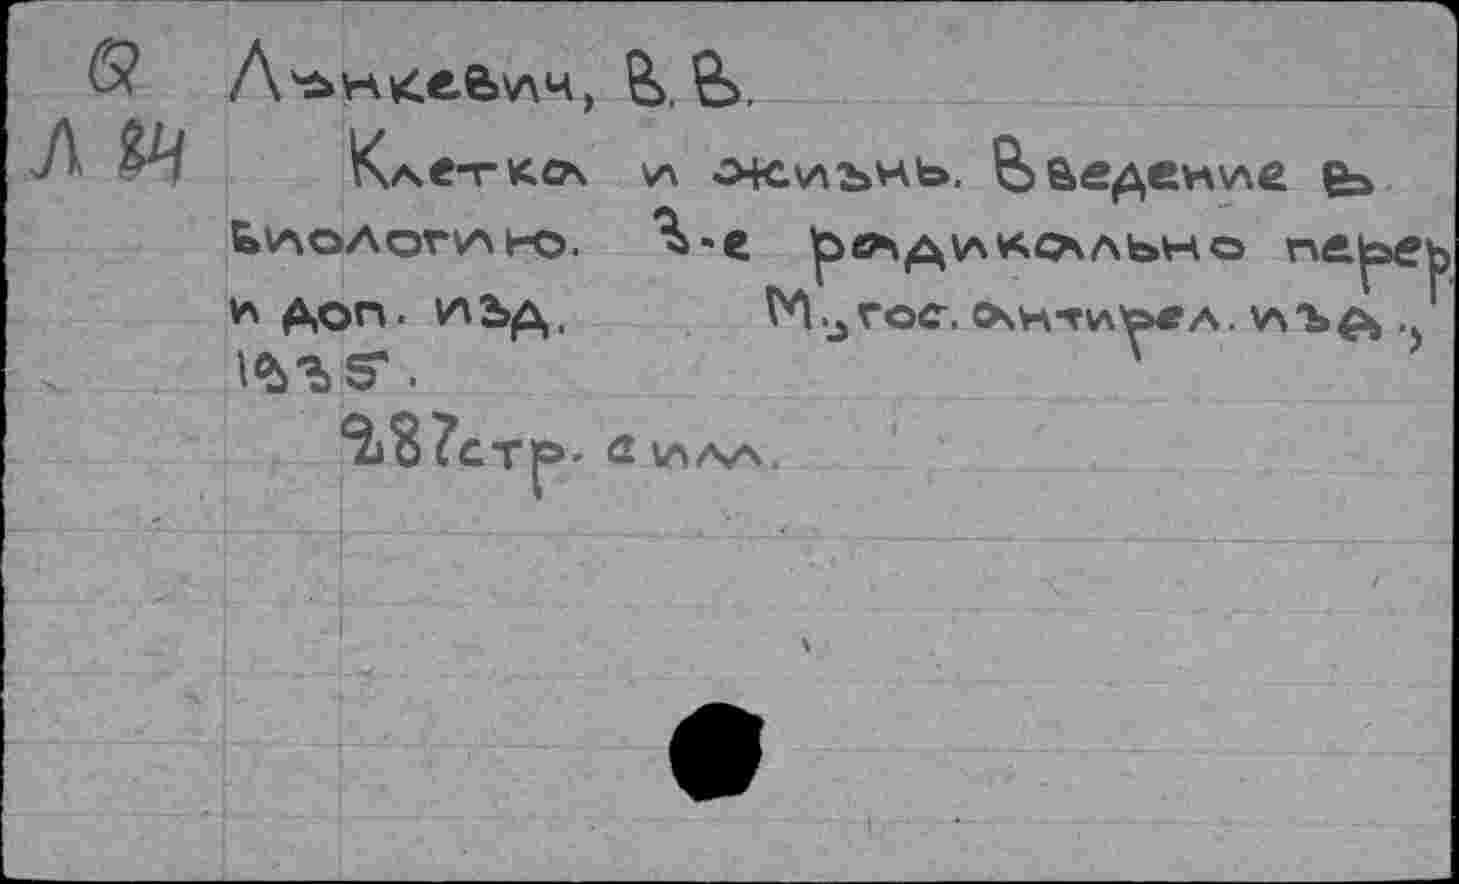 Я Лункевич, В. В.
Л 84 Клетка и жизнь. Введение в
биологию. 3-е радикально перер.
и доп. изд. М., гос. антирел. изд.,
1935.
287стр. с илл.